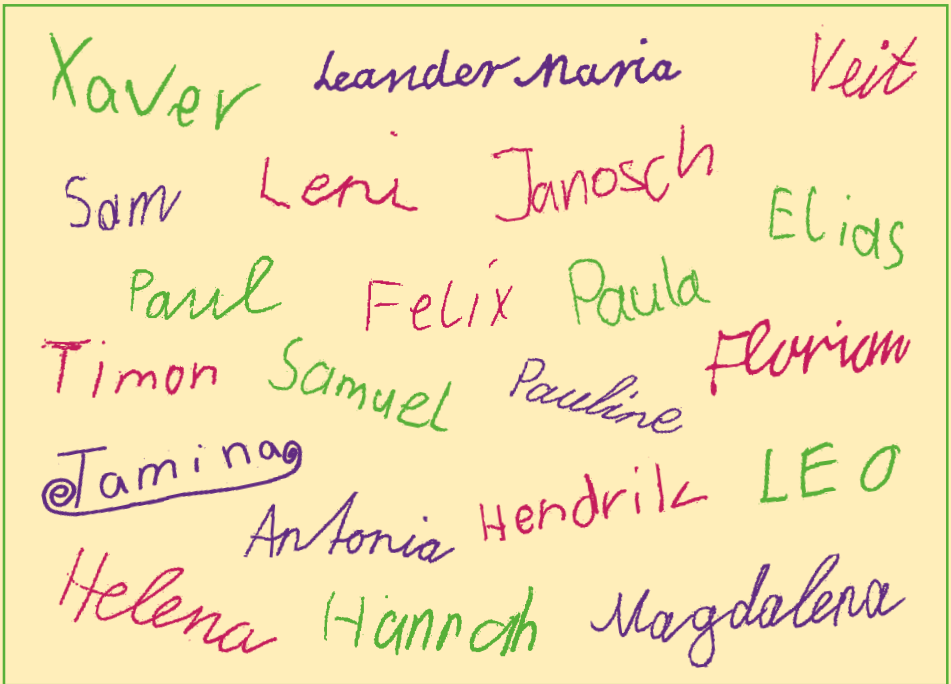 Xaver Leander Maria Veit
Sam Leni Janosch Elias
Paul Felix Paula
Timon Samuel Pauline Florian
Tamina Hendrik LEO
Antonia
Helena Hannah Magdalena